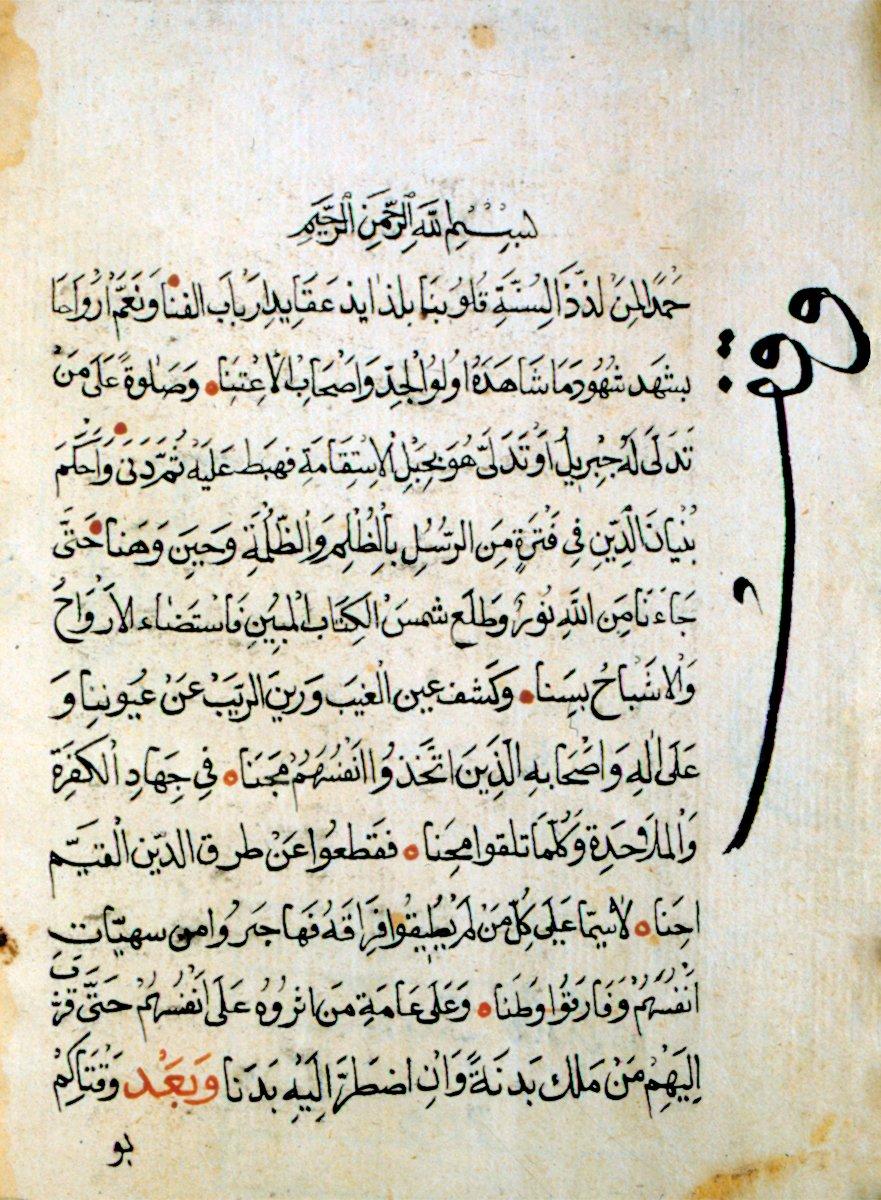 بِسْمِ اللهِ الرَّحْمٰنِ الرَّحِيمِ
حَمْدًا لِمَنْ لَذَّذَ الِسُنَّةِ قُلُوبنَا بلذايذ عَقَايِدِ ارْبَابَ الفنا وَنَعَّمَ ارْوَاحنَا
بشَهَد شُهُود مَا شَاهَدَهُ اُولُوا الْجِدِّ وَاَصْحَابِ الْاِعْتِنَا وَصَلٰوةً عَلَى مَنْ
تَدَلَى لَهُ جِبْرِيلُ اَوْ تَدَلَّى هُوَ بِحَبْلِ الْاِسْتِقَامَةِ فهَبَط عَلَيْهِ ثُمَّ دَنَى وَاَحْكَمَ
بُنْيَانَ الدِّينِ فِي فَتْرَةٍ مِنَ الرُّسُلِ بِالظُلْمِ وَالظُلْمَةِ وَحِينٍ وَهَنا حَتَّى
جَاءَنَا مِنَ اللهِ نُورٌ وَطَلَع شمسَ الكِتَابِ المُبِينِ فَاسْتَضَاء الاَرْوَاحُ
وَالْاَشْبَاحُ بِسَنا وَكَشَف عين الْغَيبَ وَرينَ الرَّيَبْ عَنْ عُيُوننِا وَ
عَلَى اٰلهِ وَاَصْحَابهِ الَّذِينَ اتَّخَذُوا اَنْفُسَهُمْ مِجَنَا فِي جِهَادِ الْكَفَرَة
وَالْمَلَاحِدَةِ وَكُلَّمَا تلقوا مِحَنا فقَطعُوا عَنْ طرق الدِّين الْقيَّم
احَنا لَاسِيَّمَا عَلَى كُلِّ مَنْ لَمْ يُطِيقُوا فِرَاقَهُ فَهَاجَرُوا من سهيّات
اَنْفُسَهُمْ وَفَارَقُوا وَطَنا وَعَلَى عَامَةِ مَن اثرُوهُ عَلَى اَنْفُسَهُمْ حَتَّى قرَّبَ
اِلَيْهِمْ مَنْ مَلَك بَدنَةً وَاِنِ اضطَرَّ اِلَيْهِ بَدَنا وَبَعْد وَقْتَاكُمْ